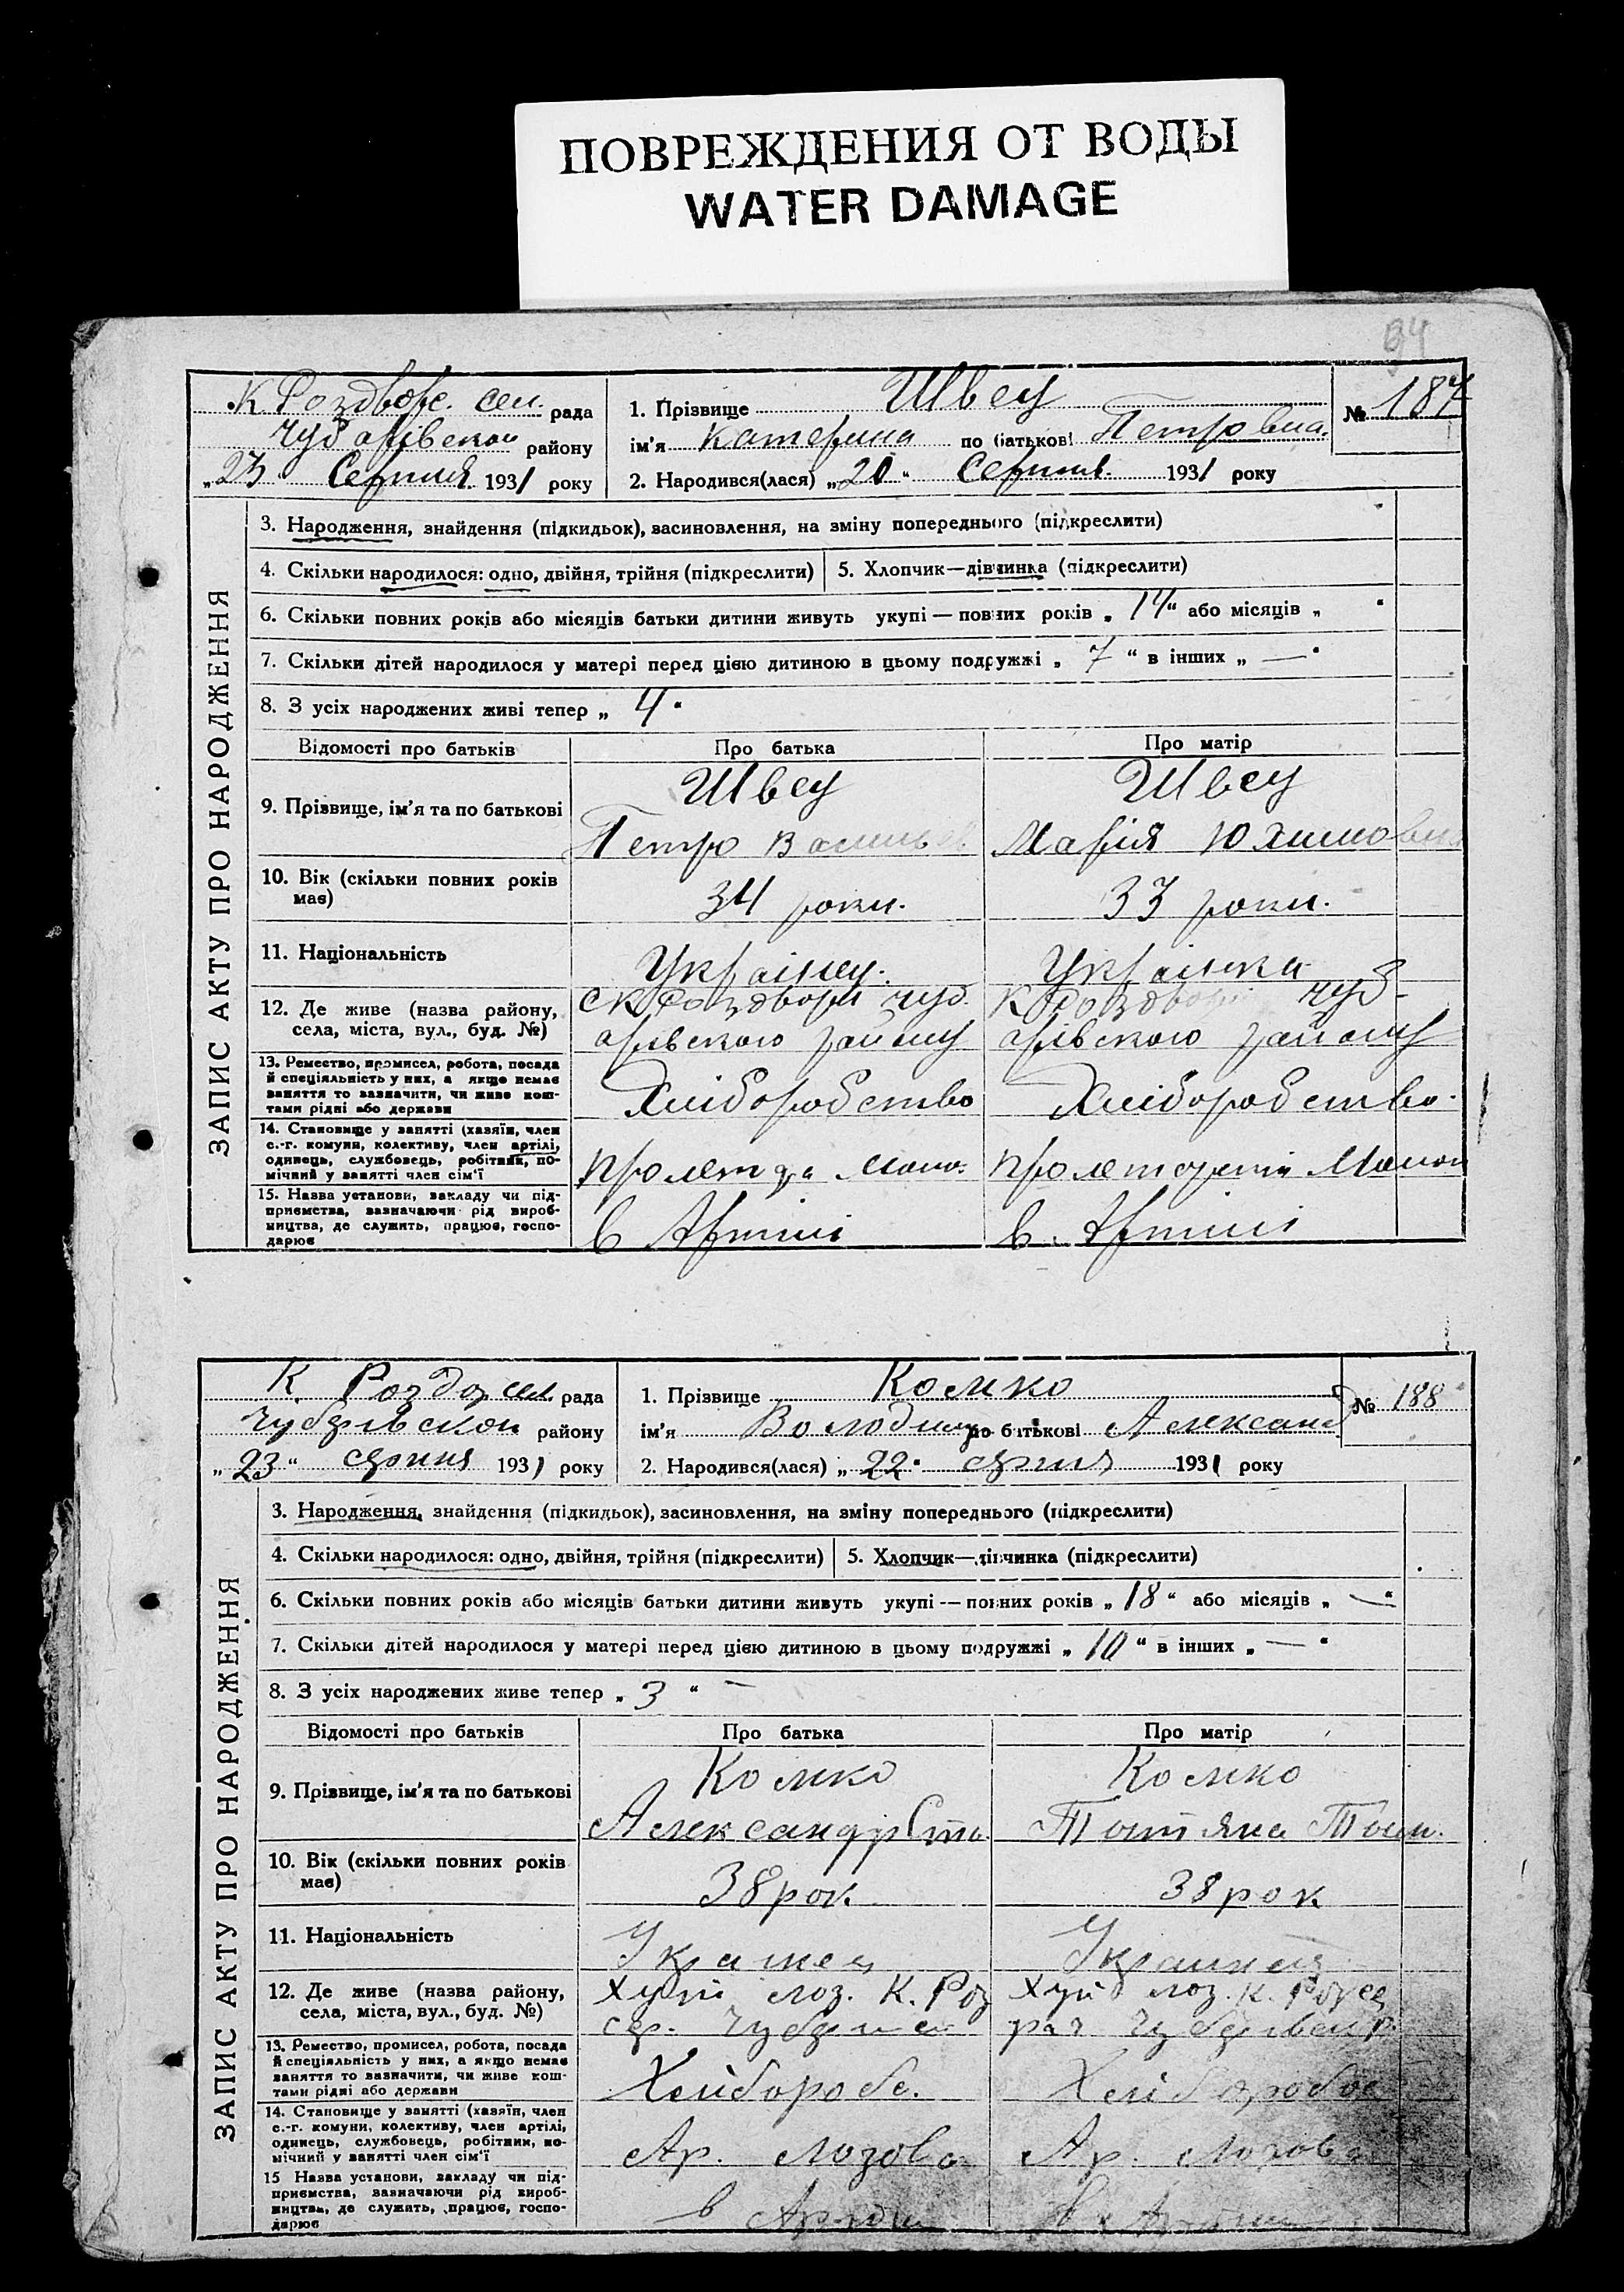 ПОВРЕЖДЕНИЯ ОТ ВОДЫ
WATER DAMAGE
94
К. Роздвор. сел. рада
Чубарівскои району
„23 Серпня 1931 року
1. Прізвище Швец
ім'я Катерина по батькові Петровна
2. Народився(лася) „20“ Серпня 1931 року
№ 187
ЗАПИС АКТУ ПРО НАРОДЖЕННЯ
3. Народження, знайдення (підкидьок), засиновлення, на зміну попереднього (підкреслити)
4. Скільки народилося: одно, двійня, трійня (підкреслити) 5. Хлопчик—дівчинка (підкреслити)
6. Скільки повних років або місяців батьки дитини живуть укупі — повних років „ 14“ або місяців „ “
7. Скільки дітей народилося у матері перед цією дитиною в цьому подружжі „ 7 “ в інших „ — “
8. З усіх народжених живі тепер „ 4 “
Відомості про батьків Про батька Про матір
9. Прізвище, ім'я та по батькові
Швец
Петро Васильев
Швец
Марія Юхимовна
10. Вік (скільки повних років має)
34 роки.
33 роки.
11. Національність
Українец.
Українка
12. Де живе (назва району,
села, міста, вул., буд. №)
чуб
арівского району
чуб-
арівского району
13. Ремество, промисел, робота, посада
й спеціяльність у них, а якщо немає
заняття то зазначити, чи живе кош-
тами рідні або держави
Хліборобство
Хліборобство.
14. Становище у занятті (хазяїн, член
с.-г. комуни, колективу, член артілі,
одинець, службовець, робітник, по-
мічний у занятті член сім'ї
15. Назва установи, закладу чи під-
приємства, зазначаючи рід вироб-
ництва, де служить, працює, госпо-
дарює
в Артілі
в. Артілі
К. Роздор сел. рада
Чубарівскои району
„ 23 “ серпня 1931 року
1. Прізвище Комко
ім'я Володимир по батькові Александ
2. Народився(лася) „ 22 “ серпня 1931 року
№ 188
ЗАПИС АКТУ ПРО НАРОДЖЕННЯ
3. Народження, знайдення (підкидьок), засиновлення, на зміну попереднього (підкреслити)
4. Скільки народилося: одно, двійня, трійня (підкреслити) 5. Хлопчик—дівчинка (підкреслити)
6. Скільки повних років або місяців батьки дитини живуть укупі — повних років „ 18 “ або місяців „ — “
7. Скільки дітей народилося у матері перед цією дитиною в цьому подружжі „ 10 “ в інших „ — “
8. З усіх народжених живе тепер „ 3 “ —
Відомості про батьків Про батька Про матір
9. Прізвище, ім'я та по батькові
Комко
Александр
Комко
Татяна
10. Вік (скільки повних років має)
38 рок
38 рок
11. Національність
Украинец
12. Де живе (назва району,
села, міста, вул., буд. №)
лоз. К. Роз
лоз. К. Роз
13. Ремество, промисел, робота, посада
й спеціяльність у них, а якщо немає
заняття то зазначити, чи живе кош-
тами рідні або держави
Хліборобс.
14. Становище у занятті (хазяїн, член
с.-г. комуни, колективу, член артілі,
одинець, службовець, робітник, по-
мічний у занятті член сім'ї
Ар. Лозова
Ар. Лозова
15 Назва установи, закладу чи під-
приємства, зазначаючи рід вироб-
ництва, де служить, працює, госпо-
дарює
в
в